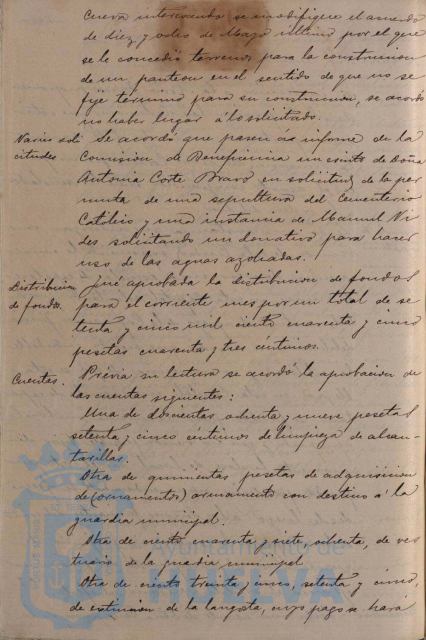 Cueva interesando se modifique el acuerdo
de diez y ocho de Mayo último por el que
se le concedió terrenos para la construccion
de un panteon en el sentido de que no se
fije término para su construccion, se acordó
no haber lugar á lo solicitado.
Varias soli Se acordó que pasen á informe de la
citudes Comision de Beneficencia un escrito de Doña
Antonia Corte Bravo en solicitud de la per
muta de una sepultura del Cementerio
Católico y una instancia de Manuel Vi
des solicitando un donativo para hacer
uso de las aguas azoadas.
Distribucion Fué aprobada la distribucion de fondos
de fondos. para el corriente mes por un total de se
tenta y cinco mil ciento cuarenta y cinco
pesetas cuarenta y tres céntimos.
Cuentas. Prévia su lectura se acordó la aprobacion de
las cuentas siguientes:
Una de doscientas ochenta y nueve pesetas
setenta y cinco céntimos de limpieza de alcan-
tarillas.
Otra de quinientas pesetas de adquisicion
de (ornamentos) armamento con destino á la
guardia municipal.
Otra de ciento cuarenta y siete, ochenta, de ves
tuario de la guardia municipal
Otra de ciento treinta y cinco, setenta y cinco,
de extincion de la langosta, cuyo pago se hará
Ayuntamiento de
HUELVA